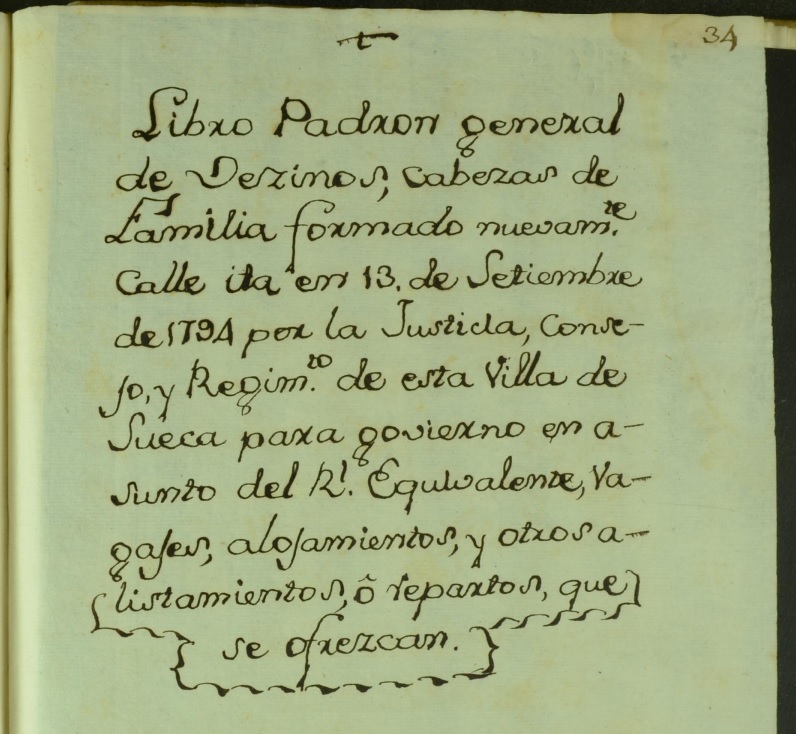 34
Libro Padron general
de Vezinos, cabezas de
Familia formado nuevam.te
Calle ita en 13. de Setiembre
de 1794 por la Justicia, Conse-
jo, y Regim.to de esta Villa de
Sueca para govierno en a-
sunto del Rl. Equivalente, Va-
gajes, alojamientos, y otros a-
listamientos, ô repartos, que
se ofrezcan.